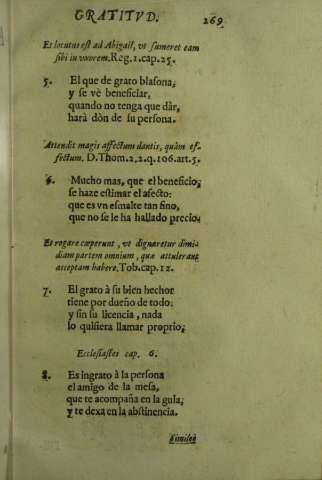 GRATITVD. 269
Et locutus est ad Abigail, vt sumeret eam
sibi in vxorem. Reg. 1. cap. 25.
5. El que de grato blasona,
y se vè beneficiar,
quando no tenga que dàr,
harà dòn de su persona.
Attendit magis affectum dantis, quàm ef-
fectum. D. Thom. 2. 2. q. 106. art. 5.
6. Mucho mas, que el beneficio,
se haze estimar el afecto:
que es vn esmalte tan fino,
que no se le ha hallado precio.
Et rogare cœperunt, vt dignaretur dimi-
diam partem omnium, quæ attulerant
acceptam habere. Tob. cap. 12.
7. El grato à su bien hechor
tiene por dueño de todo:
y sin su licencia, nada
lo quisiera llamar proprio.
Ecclesiastes cap. 6.
8. Es ingrato à la persona
el amigo de la mesa,
que te acompaña en la gula,
y te dexa en la abstinencia.